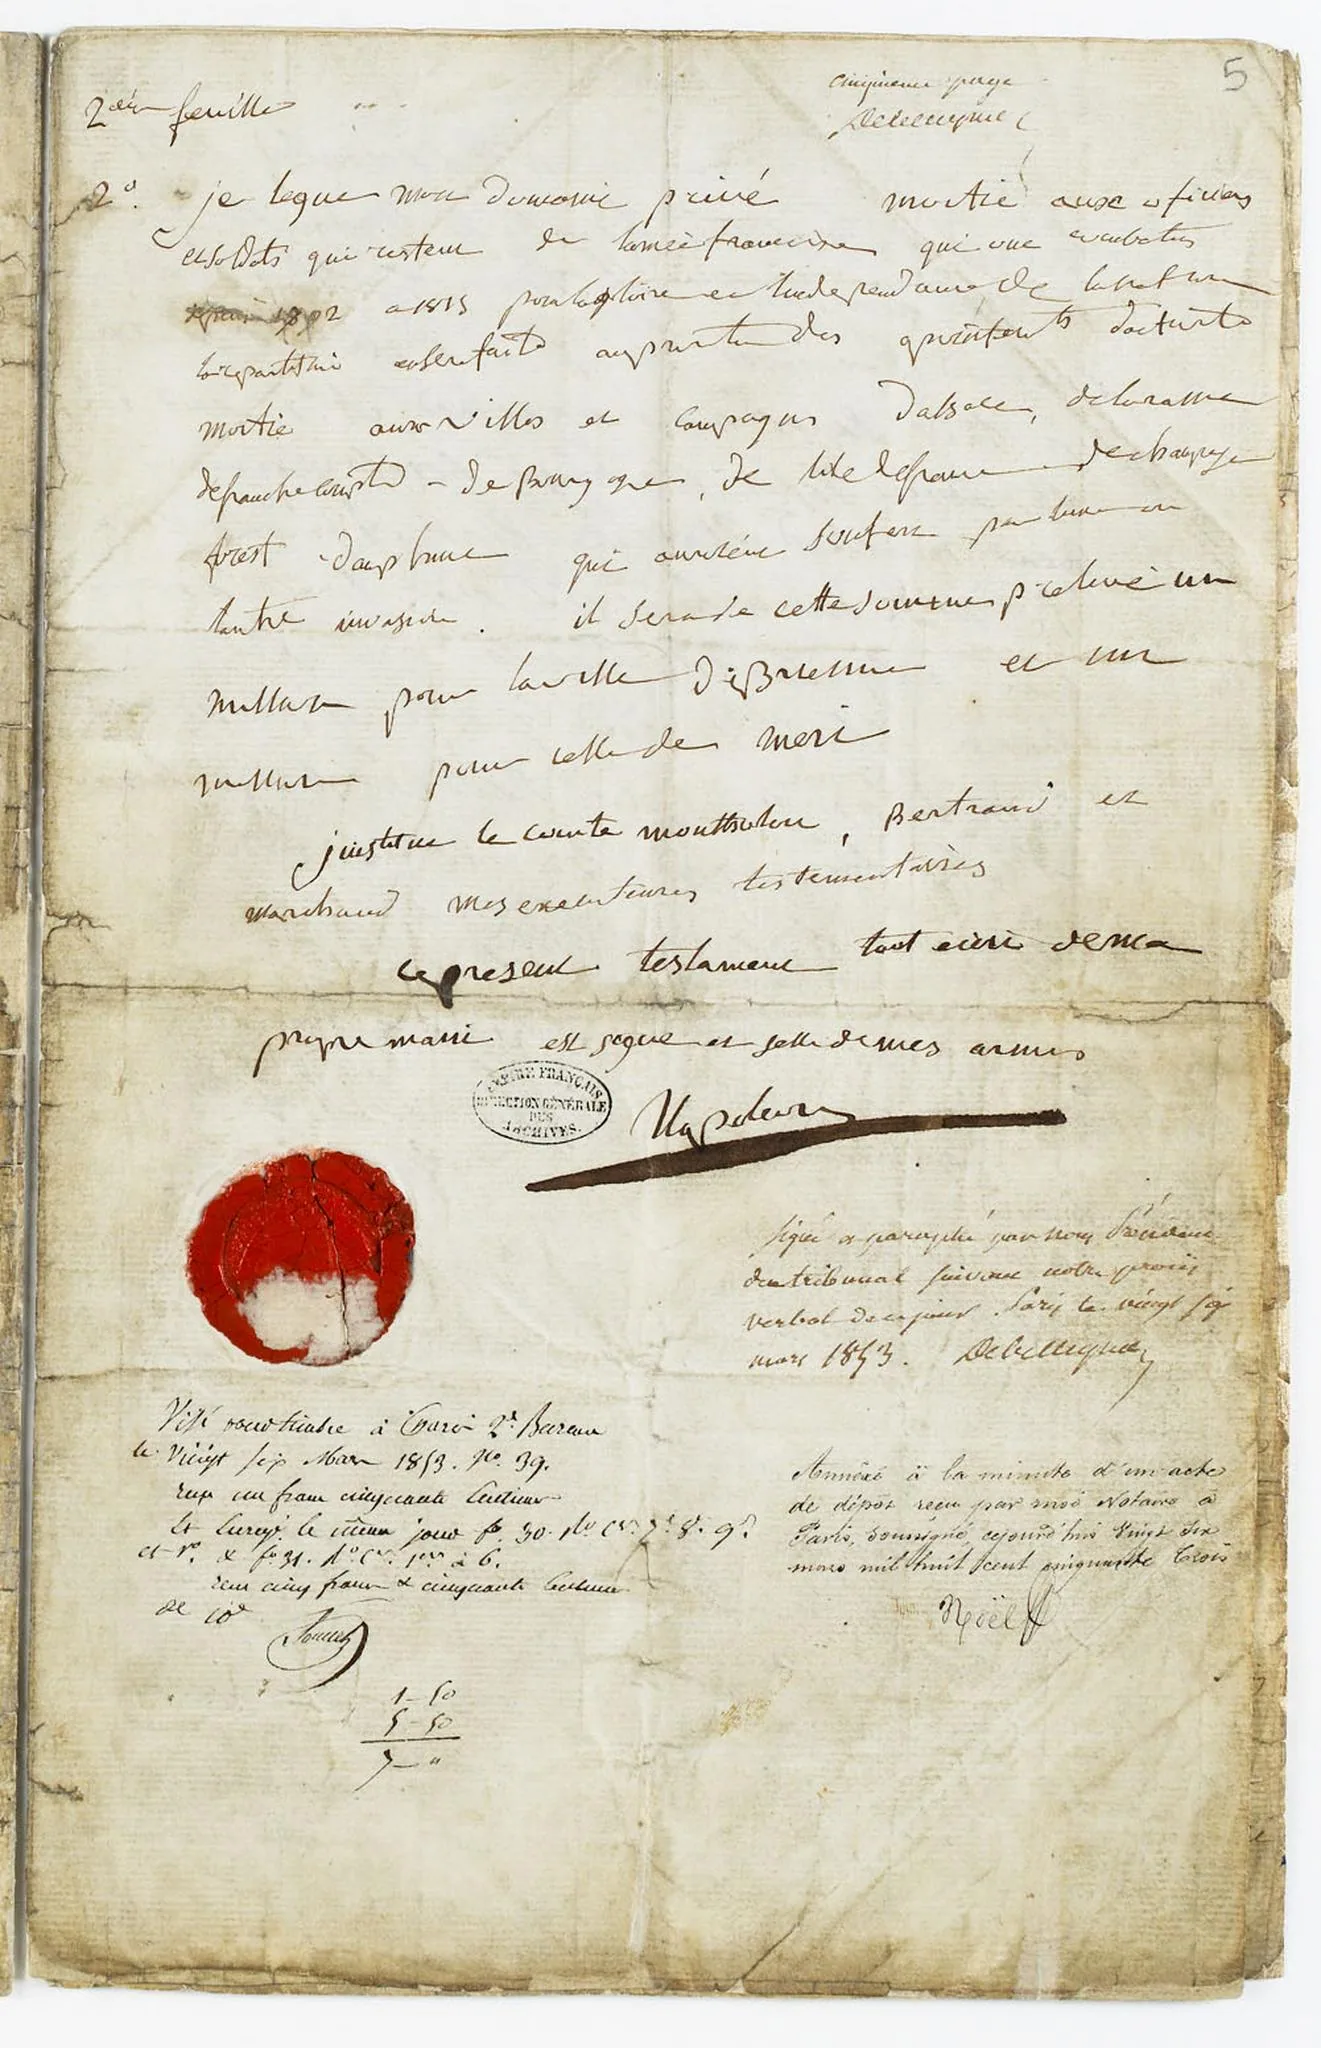 5
cinquieme page
Debelleyme
2eme feuille
2°. je legue mon domaine privé moitié aux oficiers
et soldats qui restent de l'armée francaise qui ont combatus
depuis 1802 a 1815 pour la gloire et l'independance de la nation
la repartition en sera faite au prorata des apointements d'activité
moitié aux villes et campagnes d'alsace, de loraine
de franche compté - de Bourgogne, de l'ile de france - de champagne
forest - dauphiné qui auroient soufert par l'une ou
l'autre invasion. il sera de cette somme prelevé un
million pour la ville de Brienne et un
million pour celle de meri
j'institue le comte montholon, Bertrand et
marchand mes executeurs testementaires
ce present testament tout ecrit de ma
propre main est signé et scellé de mes armes
Napoleon
EMPIRE FRANÇAIS
DIRECTION GÉNÉRALE
DES
ARCHIVES.
Signé et paraphé par nous Président
du tribunal suivant notre procès
verbal de ce jour. Paris le vingt six
mars 1853. Debelleyme
Visé pour timbre à Paris 2e Bureau
le vingt six Mars 1853. No. 39.
reçu un franc cinquante centimes
et le même jour fo. 30. Ro. 7. 8. 9.
et Vo. & fo. 31. Ro. 1er à 6.
reçu cinq francs & cinquante centimes
de 10e
Annexé à la minute d'un acte
de dépôt reçu par moi Notaire à
Paris, soussigné, cejourd'hui vingt six
mars mil huit cent cinquante trois
Noël
1-50
5-50
7-"